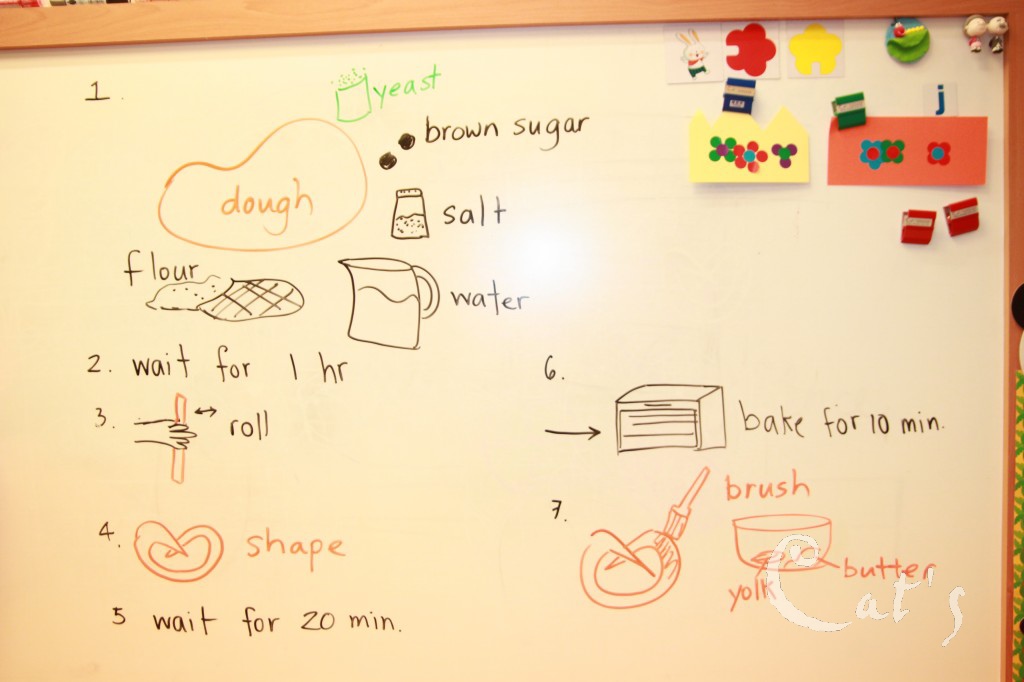 1.
yeast
brown sugar
dough
salt
flour
water
2. wait for 1 hr
3. roll
4. shape
5 wait for 20 min.
6.
bake for 10 min.
7.
brush
butter
yolk
Cat's
j